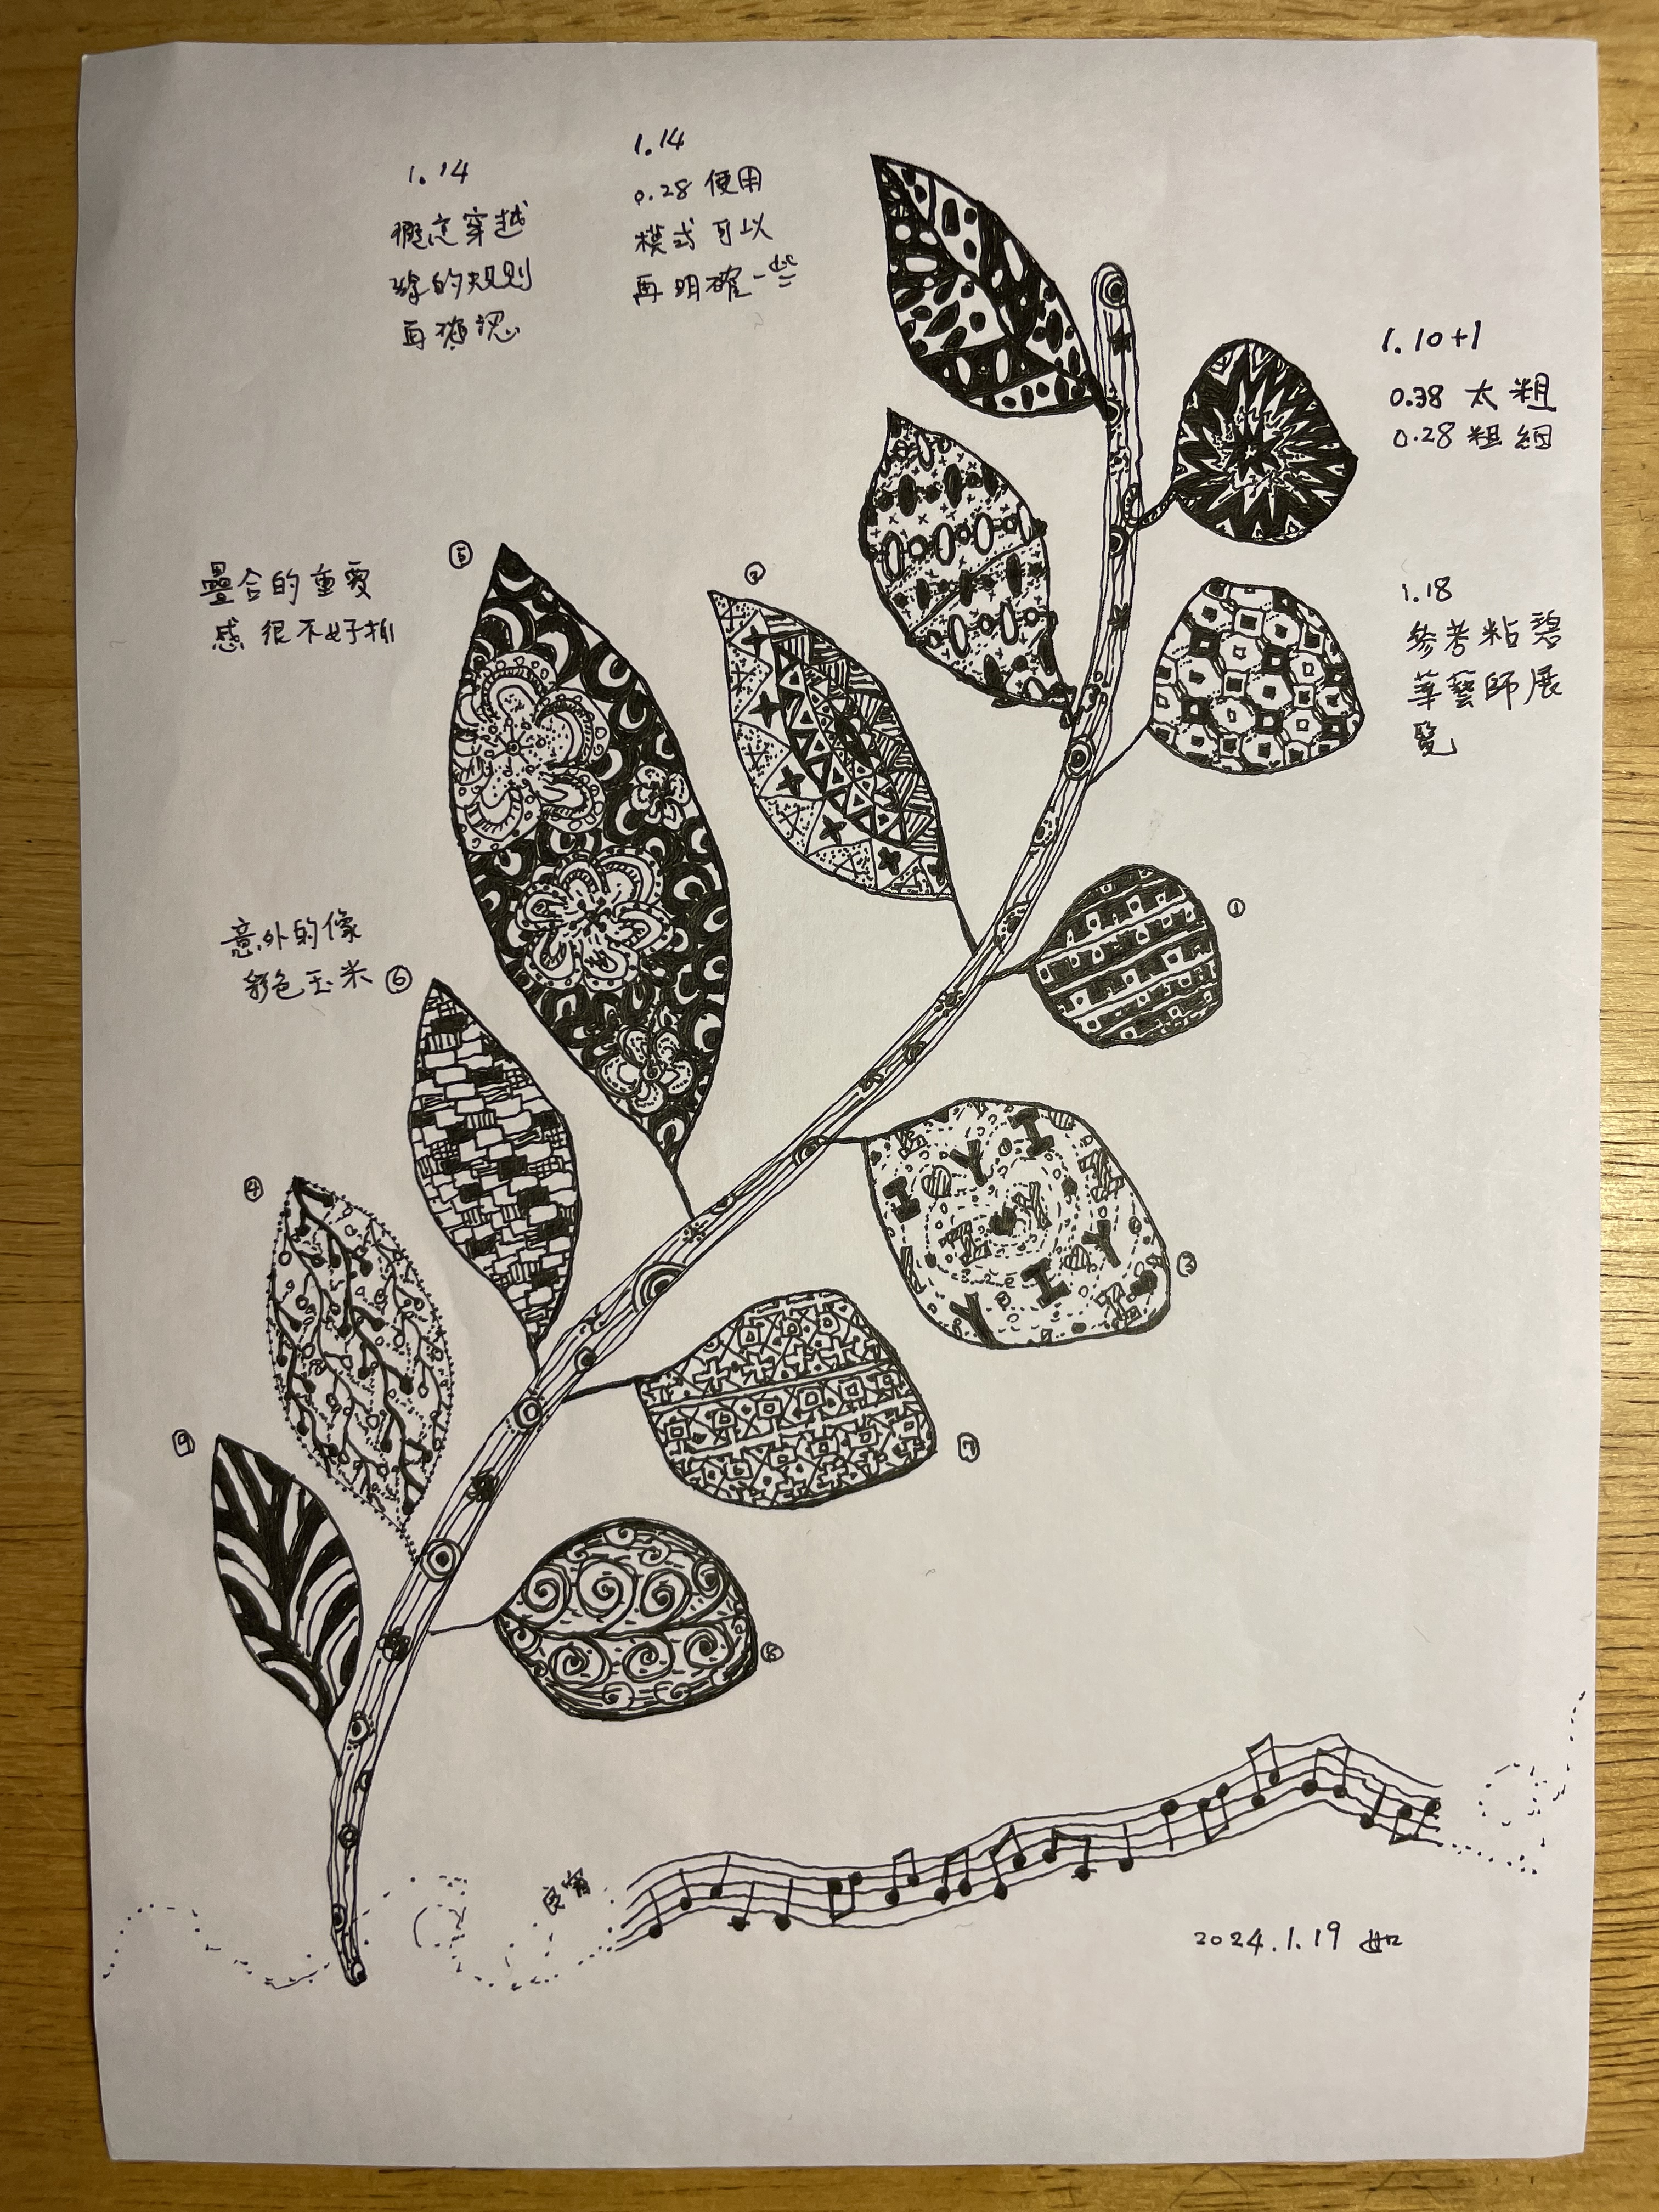 1.14
穿越
的規則
再確認
1.14
0.28 使用
模式可以
再明確一些
1.10+1
0.38 太粗
0.28 粗細
1.18
參考粘碧
華藝師展
覽
⑤
疊合的重
感 很不好抓
②
①
意外的像
彩色玉米 ⑥
④
③
⑨
⑦
⑧
良宵
2024.1.19